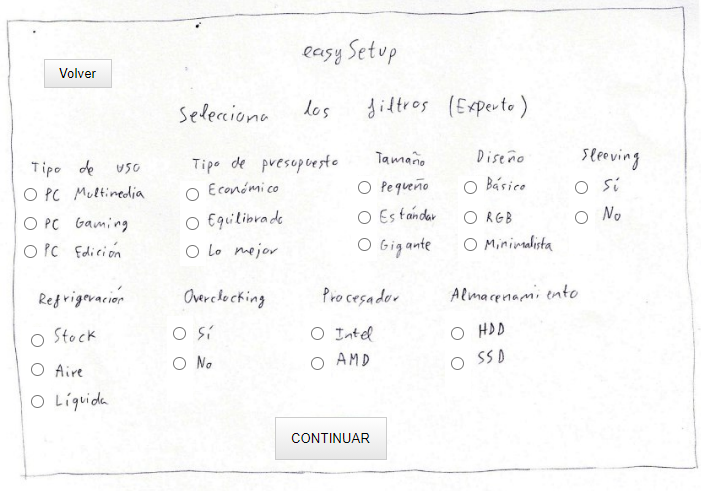 easy Setup
Volver
Selecciona los filtros (Experto)
Tipo de uso
PC Multimedia
PC Gaming
PC Edición
Tipo de presupuesto
Económico
Equilibrado
Lo mejor
Tamaño
Pequeño
Estándar
Gigante
Diseño
Básico
RGB
Minimalista
Sleeving
Sí
No
Refrigeración
Stock
Aire
Líquida
Overclocking
Sí
No
Procesador
Intel
AMD
Almacenamiento
HDD
SSD
CONTINUAR